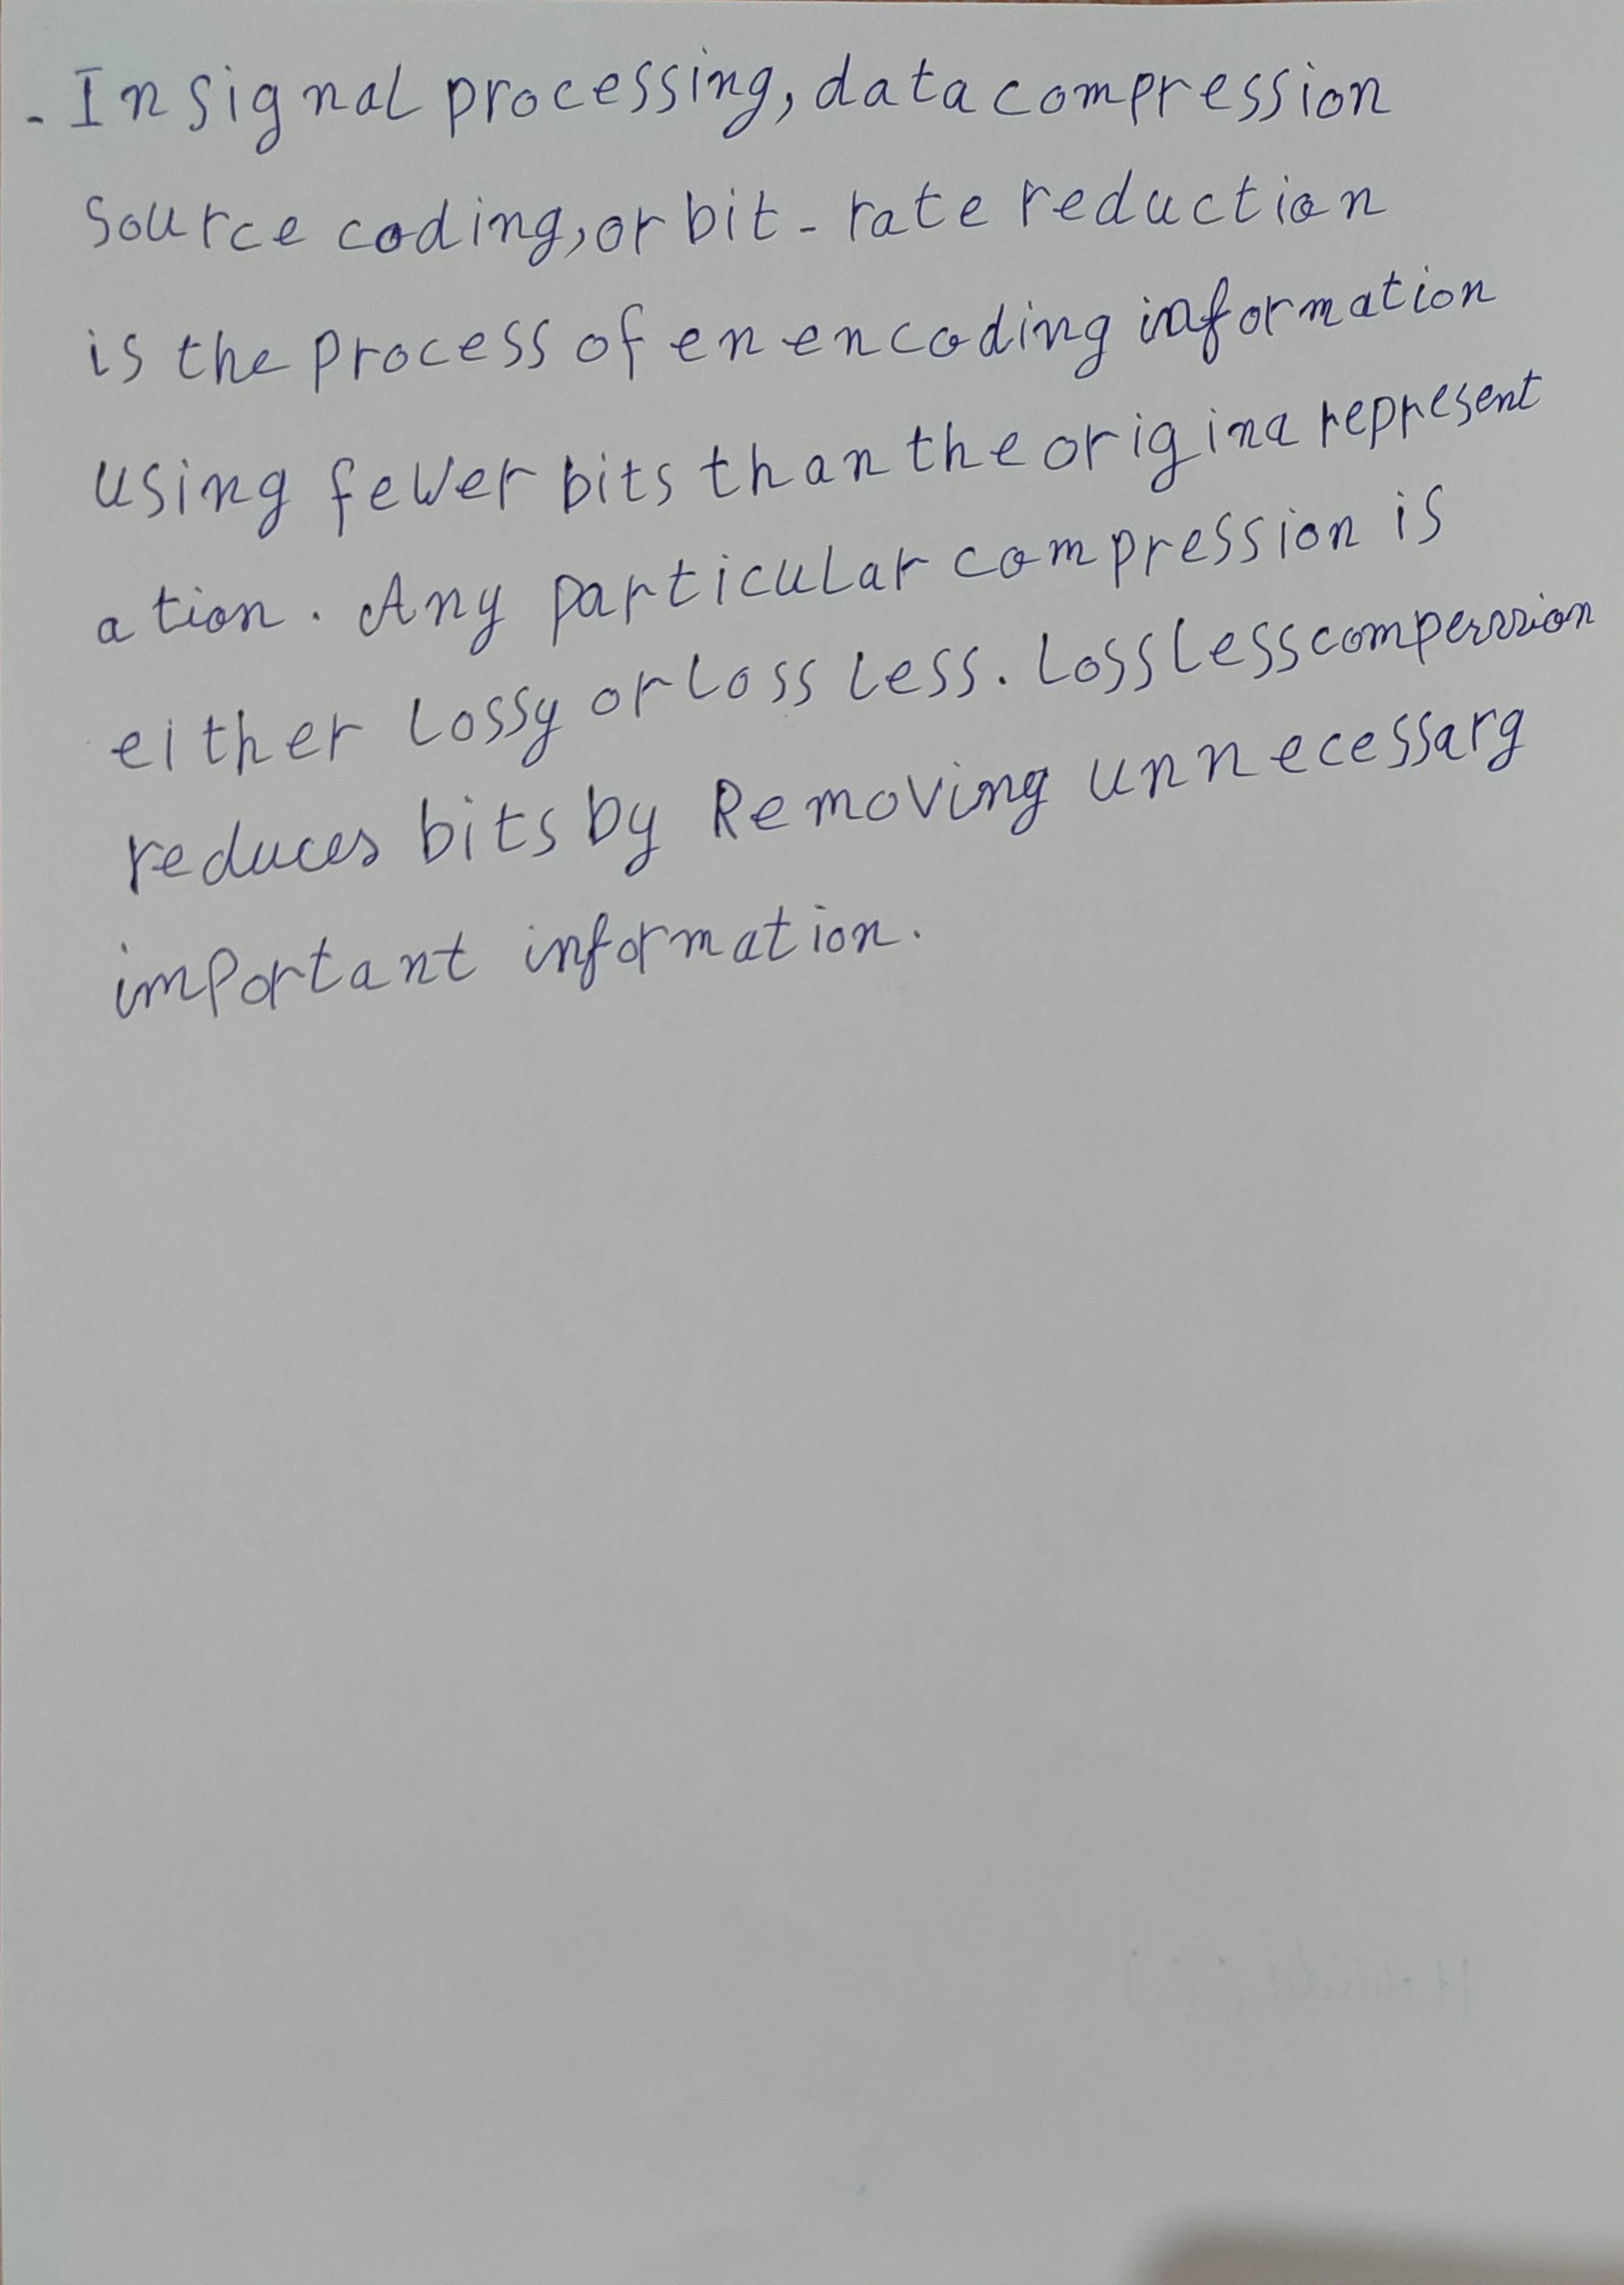 - In signal processing, data compression
source coding, or bit - rate reduction
is the process of en encoding information
using fewer bits than the origina represent
ation. Any particular compression is
either lossy or loss less. Lossless comperssion
reduces bits by Removing unnecessarg
important information.